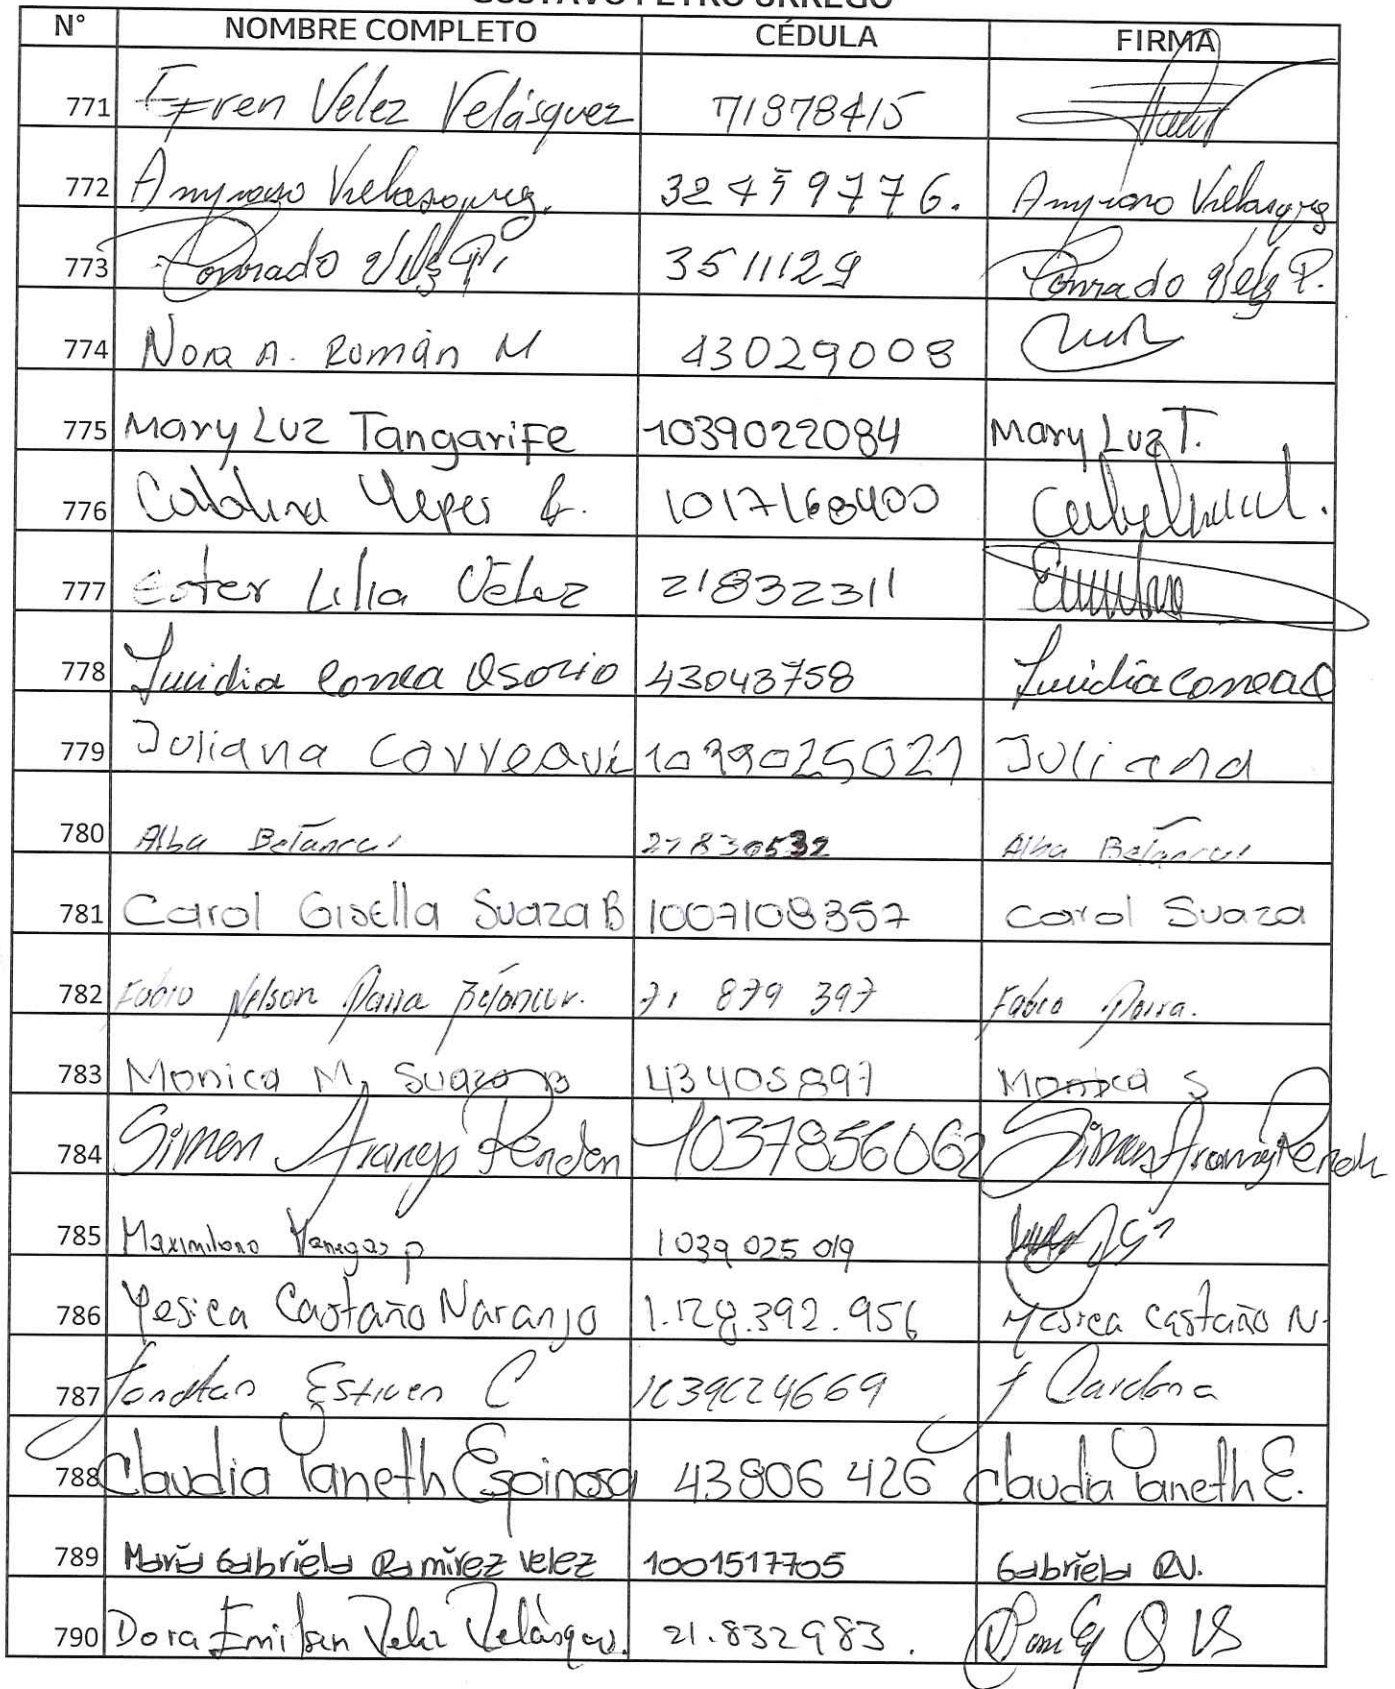 GUSTAVO PETRO URREGO
N° NOMBRE COMPLETO CÉDULA FIRMA
771 Efren Velez Velásquez 71878415
772 Velasquez. 32459776.
773 Conrado Velez P. 3511129 Conrado Velez P.
774 Nora A. Román M 43029008
775 Mary Luz Tangarife 1039022084 Mary Luz T.
776 Catalina Yepes G. 1017168400
777 Ester Lilia Vélez 21832311
778 Lucidia Correa Osorio 43043758 Lucidia Correa O
779 Juliana Correa 1039025021 Juliana
780 Alba Betancur 21830532 Alba Betancur
781 Carol Gisella Suaza B 1007108357 Carol Suaza
782 Fabio Nelson Parra Betancur. 71 879 397 Fabio Parra.
783 Monica M. Suaza B 43405897 Monica S
784 Simon Arango Rendon 1037856062 Simon Arango Rendon
785 Maximiliano Vanegas P 1039 025 019
786 Yesica Castaño Naranjo 1.128.392.956 Yesica Castaño N.
787 Jonatan Estiven C 1039024669 J Cardona
788 Claudia Yaneth Espinosa 43806 426 Claudia Yaneth E.
789 María Gabriela Ramírez Velez 1001517705 Gabriela RV.
790 Dora Emilsen Velez Velásquez. 21.832983.